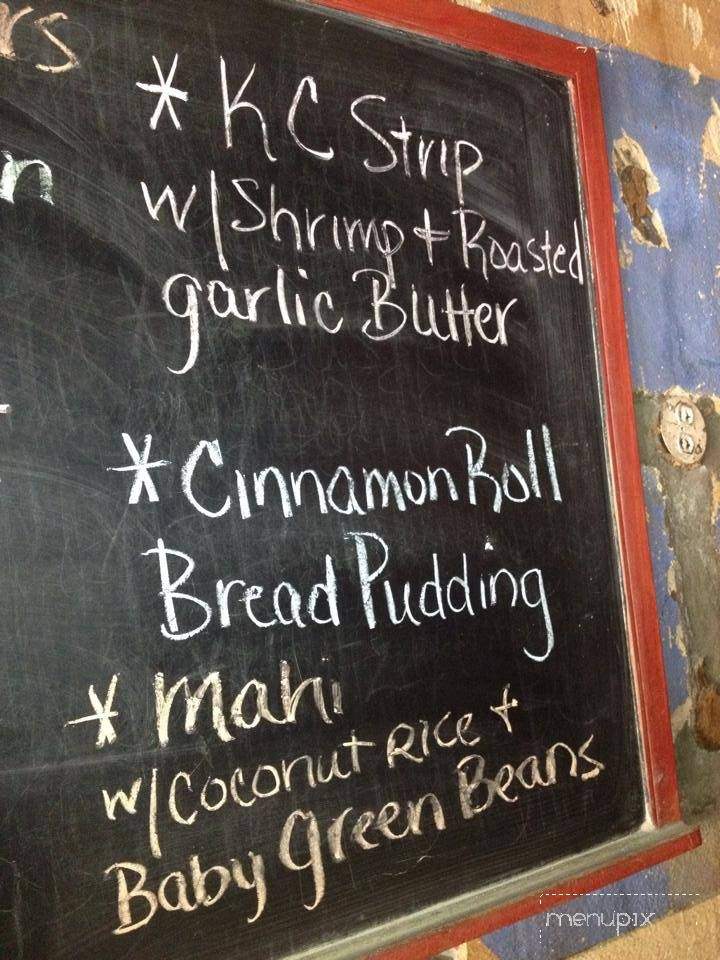 rs
* KC Strip
w/Shrimp + Roasted
garlic Butter
n
* Cinnamon Roll
Bread Pudding
* Mahi
w/Coconut Rice +
Baby green Beans
menupix